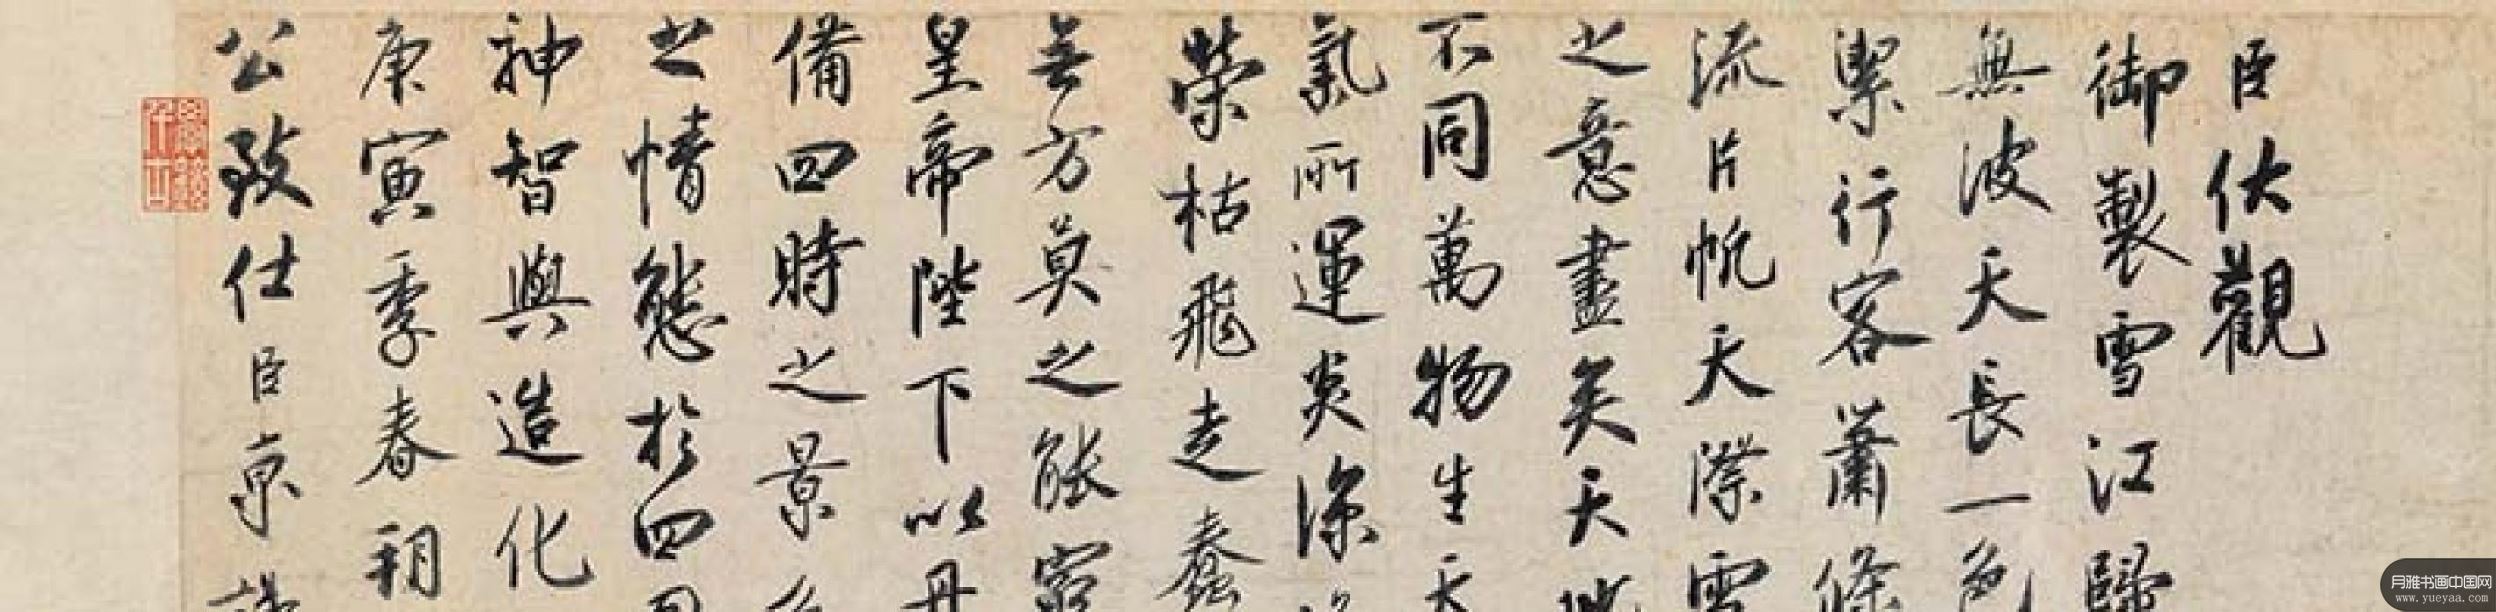 臣伏觀
御製雪江歸
無波天長一色
潔行客蕭條
流片帆天際雪
之意盡矣天地
不同萬物生天
氣所運炎涼
榮枯飛走蠢
無方莫之能窮
皇帝陛下以丹
備四時之景色
之情態於四圖
神智與造化
庚寅季春朔
公致仕臣京謹
月雅书画中国网
www.yueyaa.com